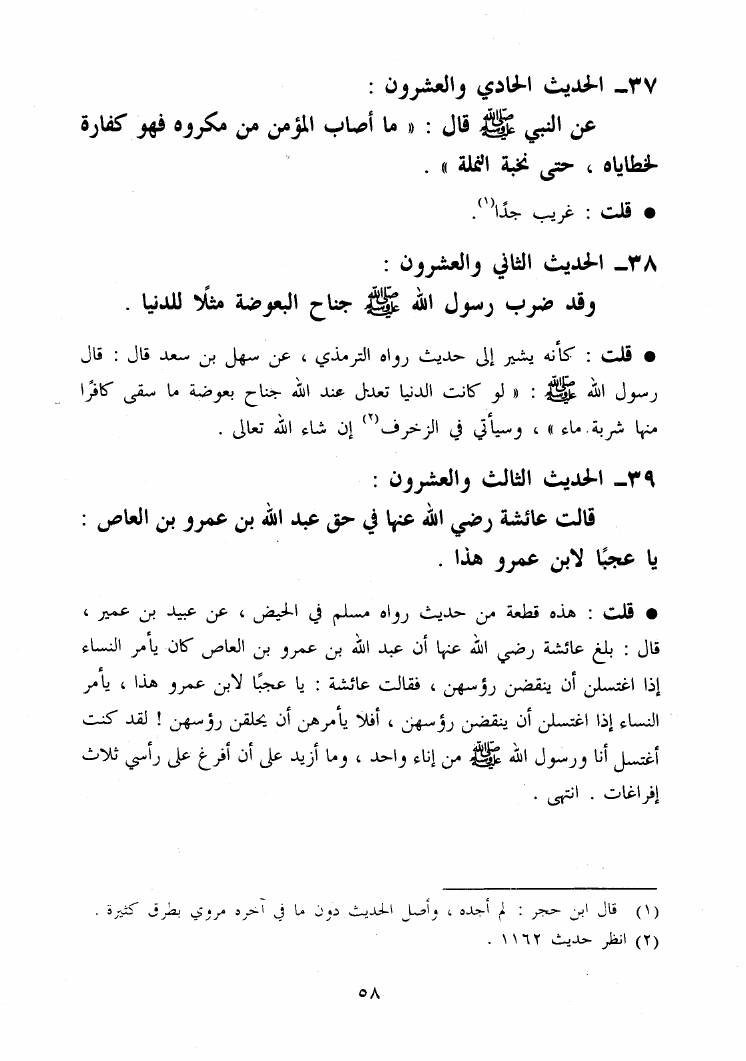 ٣٧ـ الحديث الحادي والعشرون :
عن النبي ﷺ قال : « ما أصاب المؤمن من مكروه فهو كفارة
لخطاياه ، حتى نخبة النملة » .
● قلت : غريب جدًا(١).
٣٨ـ الحديث الثاني والعشرون :
وقد ضرب رسول الله ﷺ جناح البعوضة مثلًا للدنيا .
● قلت : كأنه يشير إلى حديث رواه الترمذي ، عن سهل بن سعد قال : قال
رسول الله ﷺ : « لو كانت الدنيا تعدل عند الله جناح بعوضة ما سقى كافرًا
منها شربة ماء » ، وسيأتي في الزخرف(٢) إن شاء الله تعالى .
٣٩ـ الحديث الثالث والعشرون :
قالت عائشة رضي الله عنها في حق عبد الله بن عمرو بن العاص :
يا عجبًا لابن عمرو هذا .
● قلت : هذه قطعة من حديث رواه مسلم في الحيض ، عن عبيد بن عمير ،
قال : بلغ عائشة رضي الله عنها أن عبد الله بن عمرو بن العاص كان يأمر النساء
إذا اغتسلن أن ينقضن رؤسهن ، فقالت عائشة : يا عجبًا لابن عمرو هذا ، يأمر
النساء إذا اغتسلن أن ينقضن رؤسهن ، أفلا يأمرهن أن يحلقن رؤسهن ! لقد كنت
أغتسل أنا ورسول الله ﷺ من إناء واحد ، وما أزيد على أن أفرغ على رأسي ثلاث
إفراغات . انتهى .
(١) قال ابن حجر : لم أجده ، وأصل الحديث دون ما في آخره مروي بطرق كثيرة .
(٢) انظر حديث ١١٦٢ .
٥٨